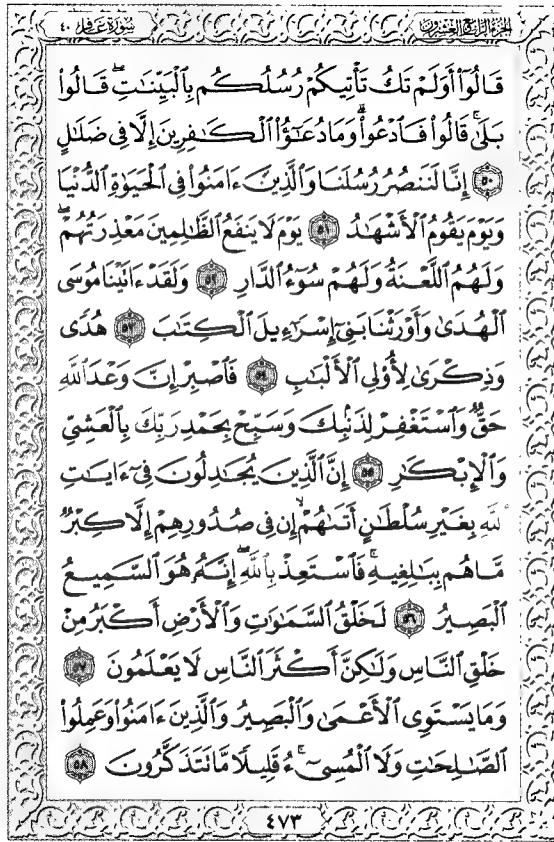 الجزء الرابع والعشرون
سورة غافر ٤٠
قَالُوٓا۟ أَوَلَمْ تَكُ تَأْتِيكُمْ رُسُلُكُم بِٱلْبَيِّنَٰتِ ۖ قَالُوا۟
بَلَىٰ ۚ قَالُوا۟ فَٱدْعُوا۟ ۗ وَمَا دُعَٰٓؤُا۟ ٱلْكَٰفِرِينَ إِلَّا فِى ضَلَٰلٍ
٥٠ إِنَّا لَنَنصُرُ رُسُلَنَا وَٱلَّذِينَ ءَامَنُوا۟ فِى ٱلْحَيَوٰةِ ٱلدُّنْيَا
وَيَوْمَ يَقُومُ ٱلْأَشْهَٰدُ ٥١ يَوْمَ لَا يَنفَعُ ٱلظَّٰلِمِينَ مَعْذِرَتُهُمْ ۖ
وَلَهُمُ ٱللَّعْنَةُ وَلَهُمْ سُوٓءُ ٱلدَّارِ ٥٢ وَلَقَدْ ءَاتَيْنَا مُوسَى
ٱلْهُدَىٰ وَأَوْرَثْنَا بَنِىٓ إِسْرَٰٓءِيلَ ٱلْكِتَٰبَ ٥٣ هُدًى
وَذِكْرَىٰ لِأُو۟لِى ٱلْأَلْبَٰبِ ٥٤ فَٱصْبِرْ إِنَّ وَعْدَ ٱللَّهِ
حَقٌّ وَٱسْتَغْفِرْ لِذَنۢبِكَ وَسَبِّحْ بِحَمْدِ رَبِّكَ بِٱلْعَشِىِّ
وَٱلْإِبْكَٰرِ ٥٥ إِنَّ ٱلَّذِينَ يُجَٰدِلُونَ فِىٓ ءَايَٰتِ
ٱللَّهِ بِغَيْرِ سُلْطَٰنٍ أَتَىٰهُمْ ۙ إِن فِى صُدُورِهِمْ إِلَّا كِبْرٌ
مَّا هُم بِبَٰلِغِيهِ ۚ فَٱسْتَعِذْ بِٱللَّهِ ۖ إِنَّهُۥ هُوَ ٱلسَّمِيعُ
ٱلْبَصِيرُ ٥٦ لَخَلْقُ ٱلسَّمَٰوَٰتِ وَٱلْأَرْضِ أَكْبَرُ مِنْ
خَلْقِ ٱلنَّاسِ وَلَٰكِنَّ أَكْثَرَ ٱلنَّاسِ لَا يَعْلَمُونَ ٥٧
وَمَا يَسْتَوِى ٱلْأَعْمَىٰ وَٱلْبَصِيرُ وَٱلَّذِينَ ءَامَنُوا۟ وَعَمِلُوا۟
ٱلصَّٰلِحَٰتِ وَلَا ٱلْمُسِىٓءُ ۚ قَلِيلًا مَّا تَتَذَكَّرُونَ ٥٨
٤٧٣